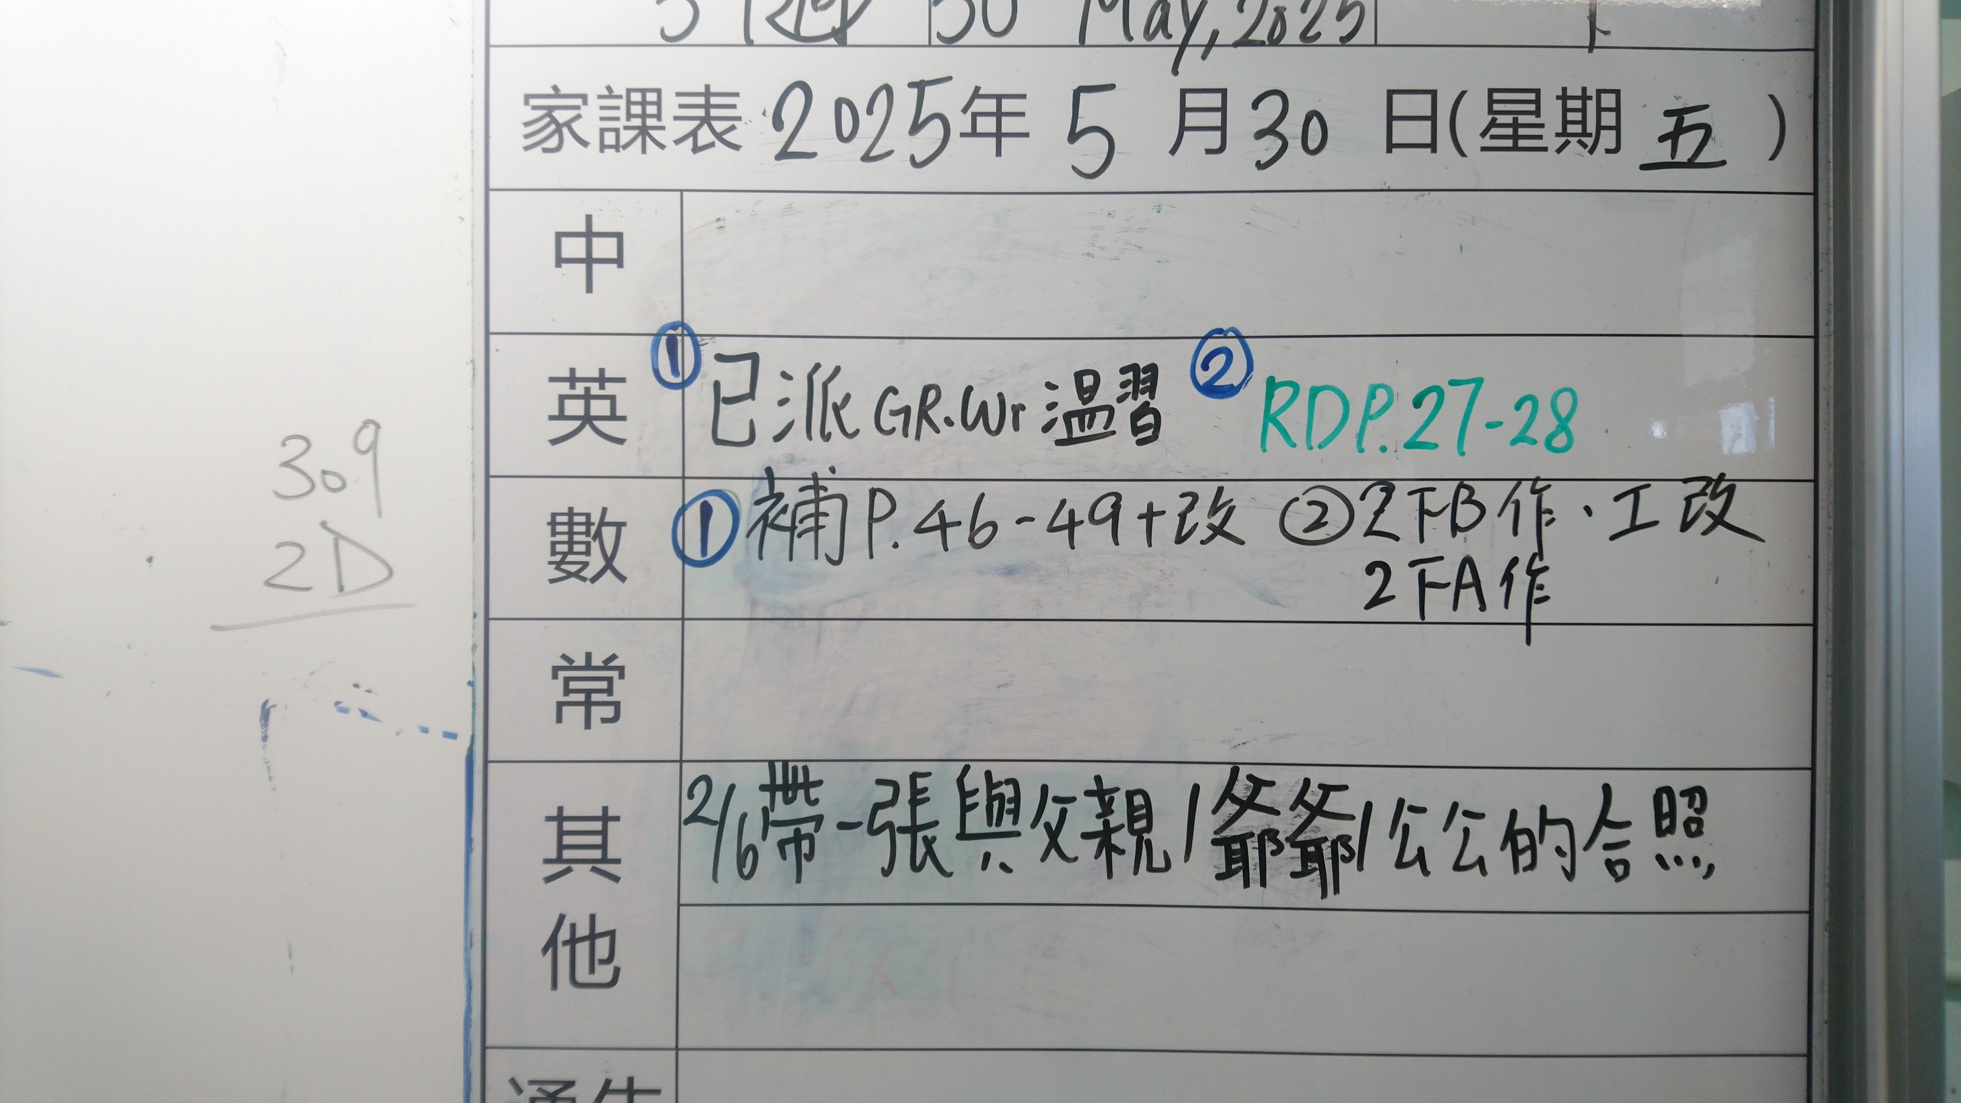 May, 2025
家課表 2025年 5 月 30 日(星期 五 )
中
英 ① 已派 GR.Wr 溫習 ② RDP.27-28
數 ① 補 P.46-49+改 ② 2下B作、工改
2下A作
常
其他 2/6帶一張與父親/爺爺/公公的合照
309
2D